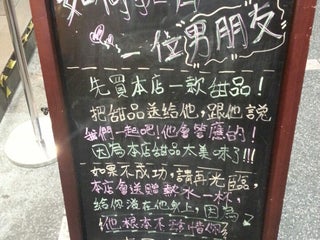 如何
一位男朋友
先買本店一款甜品!
把甜品送給他,跟他說
我們一起吧!他會答應的!
因為本店甜品太美味了!!!
如果不成功,請再光臨,
本店會送贈款水一杯,
給你潑在他身上,因為
他根本不珍惜你